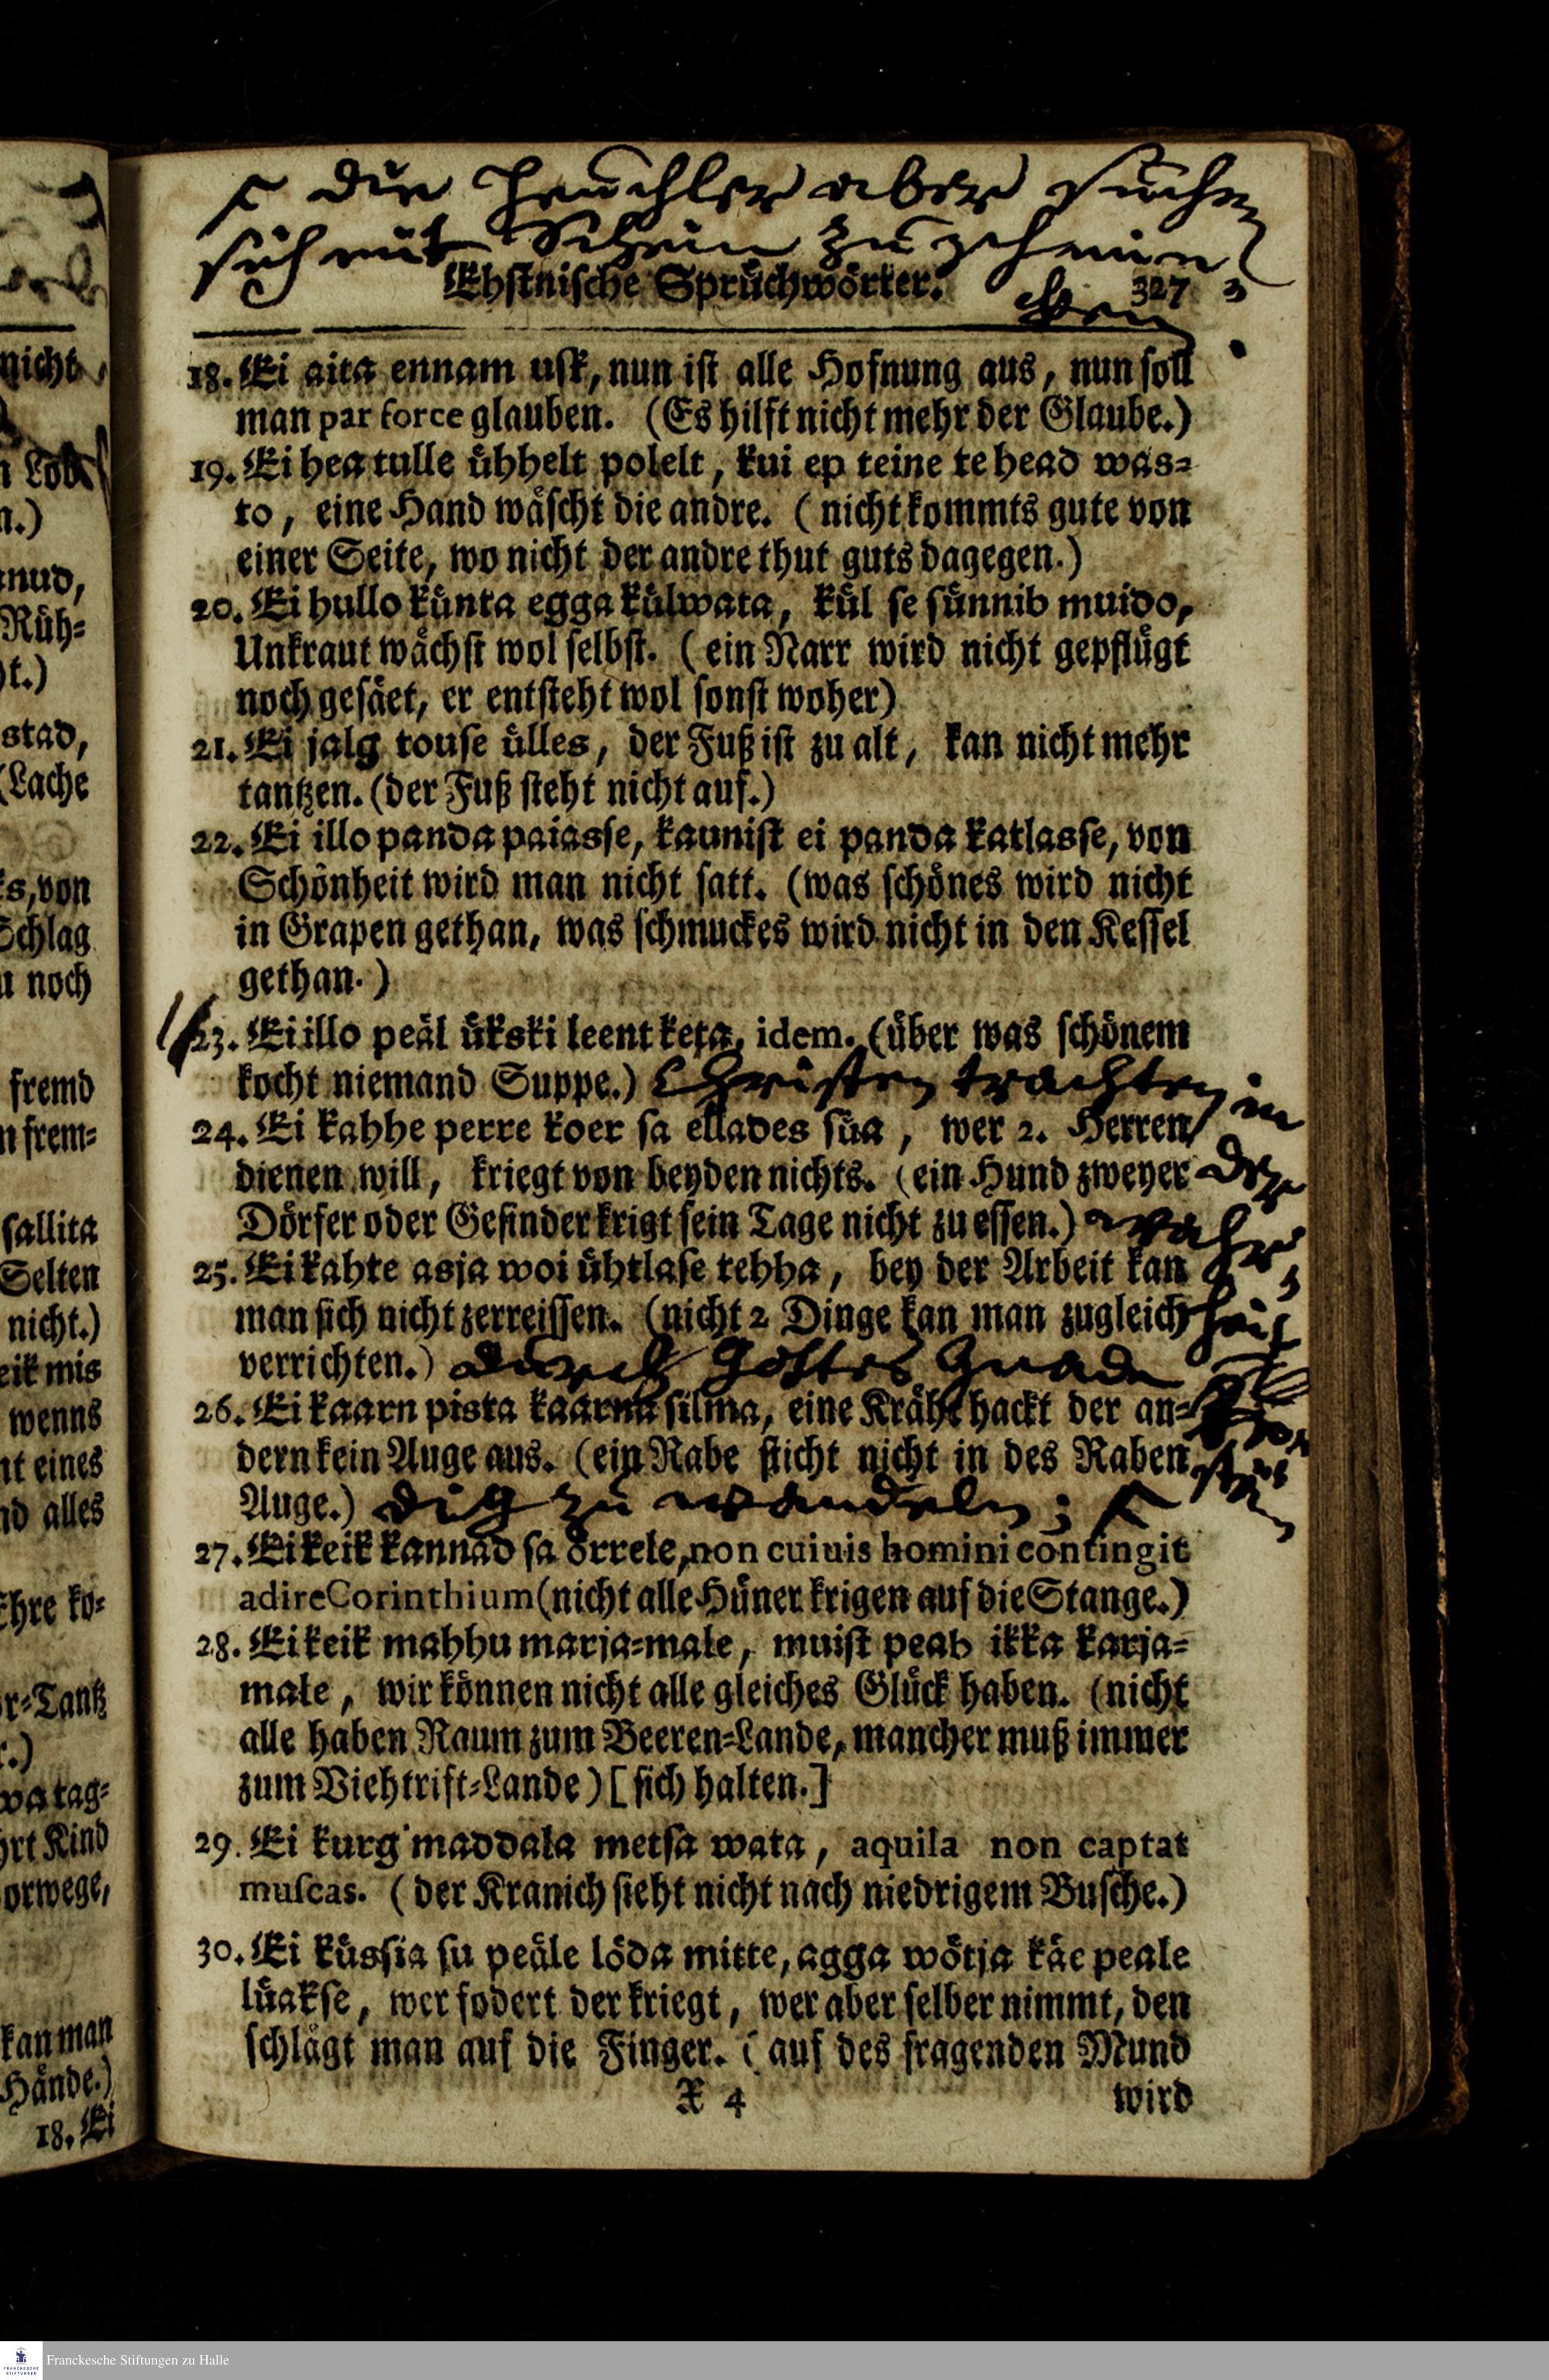 die Heuchler aber suchen
sich mit Schein zu
Ehstnische Sprůchwörter. 327
18. Ei aita ennam usk, nun ist alle Hofnung aus, nun soll
man par force glauben. (Es hilft nicht mehr der Glaube.)
19. Ei hea tulle ůhhelt polelt, kui ep teine te head was=
to, eine Hand wåscht die andre. (nicht kommts gute von
einer Seite, wo nicht der andre thut guts dagegen.)
20. Ei hullo kůnta egga kůlwata, kůl se sůnnib muido,
Unkraut wåchst wol selbst. (ein Narr wird nicht gepflůgt
noch gesået, er entsteht wol sonst woher)
21. Ei jalg touse ůlles, der Fuß ist zu alt, kan nicht mehr
tantzen. (der Fuß steht nicht auf.)
22. Ei illo panda paiasse, kaunist ei panda katlasse, von
Schönheit wird man nicht satt. (was schönes wird nicht
in Grapen gethan, was schmuckes wird nicht in den Kessel
gethan.)
23. Ei illo peål ůkski leent keta, idem. (ůber was schönem
kocht niemand Suppe.) Christen trachten in
24. Ei kahhe perre koer sa ellades sůa, wer 2. Herren
dienen will, kriegt von beyden nichts. (ein Hund zweyer der
Dörfer oder Gesinder krigt sein Tage nicht zu essen.) wahr
25. Ei kahte asja woi ůhtlase tehha, bey der Arbeit kan
man sich nicht zerreissen. (nicht 2 Dinge kan man zugleich heit
verrichten.) durch Gottes Gnade
26. Ei kaarn pista kaarna silma, eine Kråhe hackt der an=
dern kein Auge aus. (ein Rabe sticht nicht in des Raben
Auge.) dig zu wandeln;
27. Ei keik kannad sa örrele, non cuiuis homini contingit
adire Corinthium (nicht alle Hůner krigen auf die Stange.)
28. Ei keik mahhu marja=male, muist peab ikka karja=
male, wir können nicht alle gleiches Glůck haben. (nicht
alle haben Raum zum Beeren=Lande, mancher muß immer
zum Viehtrift=Lande) [sich halten.]
29. Ei kurg maddala metsa wata, aquila non captat
muscas. (der Kranich sieht nicht nach niedrigem Busche.)
30. Ei kůssia su peåle löda mitte, agga wötja kåe peale
lůakse, wer fodert der kriegt, wer aber selber nimmt, den
schlågt man auf die Finger. (auf des fragenden Mund
X 4 wird
nicht
Lob
n.)
Růh=
t.)
stad,
(Lache
von
Schlag
noch
fremd
frem=
sallita
Selten
nicht.)
mis
wenns
eines
alles
Ehre ko=
Tantz
Kind
kan man
Hånde.)
18. Ei
Franckesche Stiftungen zu Halle